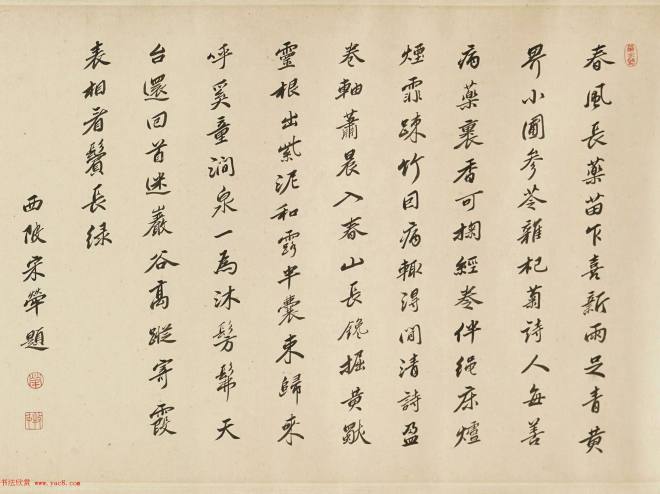 春風長藥苗乍喜新雨足青黄
界小圃參苓雜杞菊詩人每善
病藥裹香可掬經卷伴繩床爐
煙霏踈竹因病輙得閒清詩盈
卷軸蕭晨入春山長鑱掘黄
靈根出紫泥和雲半囊束歸來
呼奚童澗泉一為沐髣髴天
台還回首迷巖谷高蹤寄霞
表相看鬢長緑
西陂宋犖題
书法欣赏 www.yac8.com